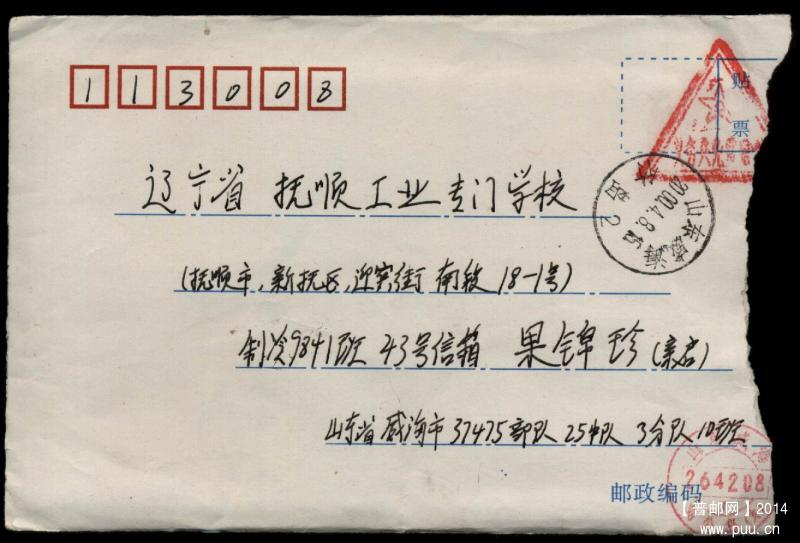 113008
贴
票
辽宁省 抚顺工业专门学校
山东威海
2000.4.8
(抚顺市,新抚区,迎宾街 南毅 18-1号)
制冷9841班 43号信箱 果锦珍(亲启)
山东省威海市37475部队25中队3分队10班
264208
邮政编码
【普邮网】2014
www.puu.cn